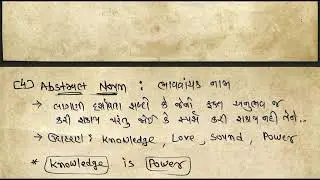 (4) Abstract Noun : ભાવવાચક નામ
→ લાગણી દર્શાવતા શબ્દો કે જેનો ફક્ત અનુભવ જ
કરી શકાય પરંતુ જોઈ કે સ્પર્શ કરી શકાય નહીં તેને..
→ ઉદાહરણ : knowledge, Love, Sound, Power
* knowledge is Power